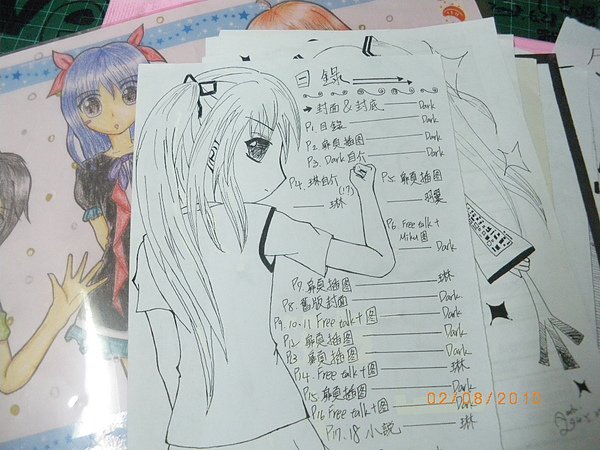 目錄
→封面&封底 Dark
P1. 目錄 Dark
P2. 扉頁插图 Dark
P3. Dark自介 Dark
P4. 琳自介 (1?) 琳
P5. 扉頁插图 羽翼
P6. Free talk+
Miku图 Dark
P7. 扉頁插图 琳
P8. 舊版封面 Dark
P9.10.11 Free talk+图 Dark
P12 扉頁插图 Dark
P13 扉頁插图 Dark
P14. Free talk+图 琳
P15. 扉頁插图 Dark
P16 Free talk+图 Dark
P17.18 小説 琳
02/08/2010